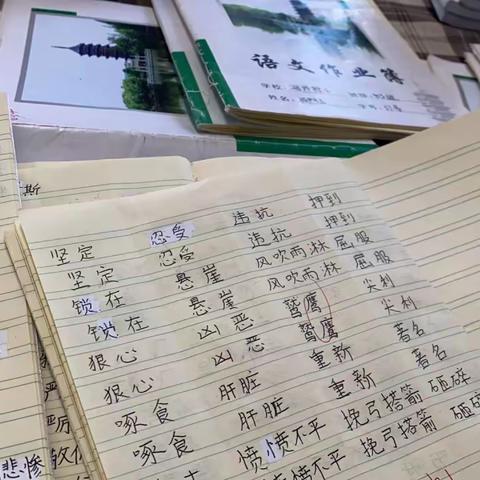 语文作业簿
学校:
姓名:
学号:
斯
坚定 忍受 违抗 押到
坚定 忍受 违抗 押到
锁在 悬崖 风吹雨淋 屈服
锁在 悬崖 风吹雨淋 屈服
狠心 凶恶 鹫鹰 尖利
狠心 凶恶 鹫鹰 尖利
啄食 肝脏 重新 著名
啄食 肝脏 重新 著名
愤愤不平 挽弓搭箭 砸碎
愤愤不平 挽弓搭箭 砸碎
严
厉
悲惨